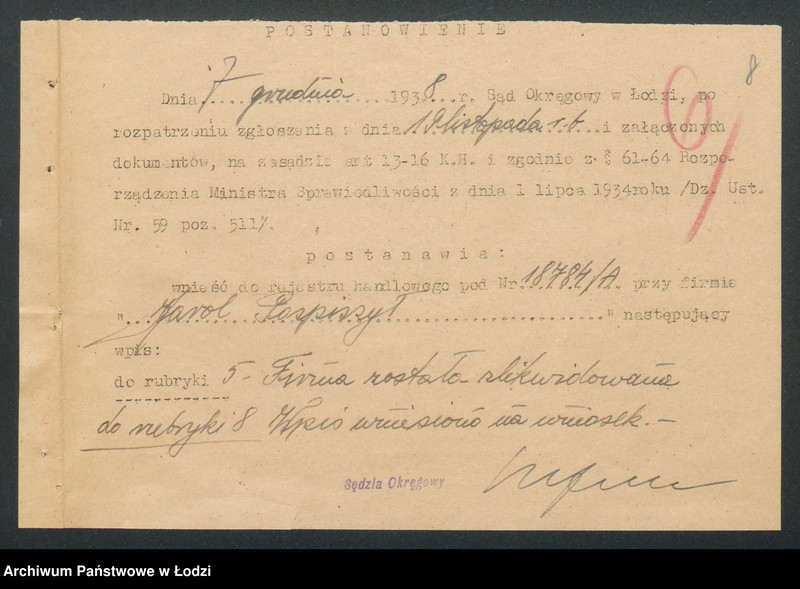 POSTANOWIENIE
8
6/
Dnia 7 grudnia 1938 r. Sąd Okręgowy w Łodzi, po
rozpatrzeniu zgłoszenia z dnia 19 listopada r.b. i załączonych
dokumentów, na zasadzie art 13-16 K.H. i zgodnie z § 61-64 Rozpo-
rządzenia Ministra Sprawiedliwości z dnia 1 lipca 1934roku /Dz. Ust.
Nr. 59 poz. 511/.
postanawia:
wnieść do rejestru handlowego pod Nr. 18784/A. przy firmie
"Karol Pospiszył" następujący
wpis:
do rubryki 5 - Firma została zlikwidowana
do rubryki 8 Wpis wniesiono na wniosek. -
Sędzia Okręgowy
Archiwum Państwowe w Łodzi